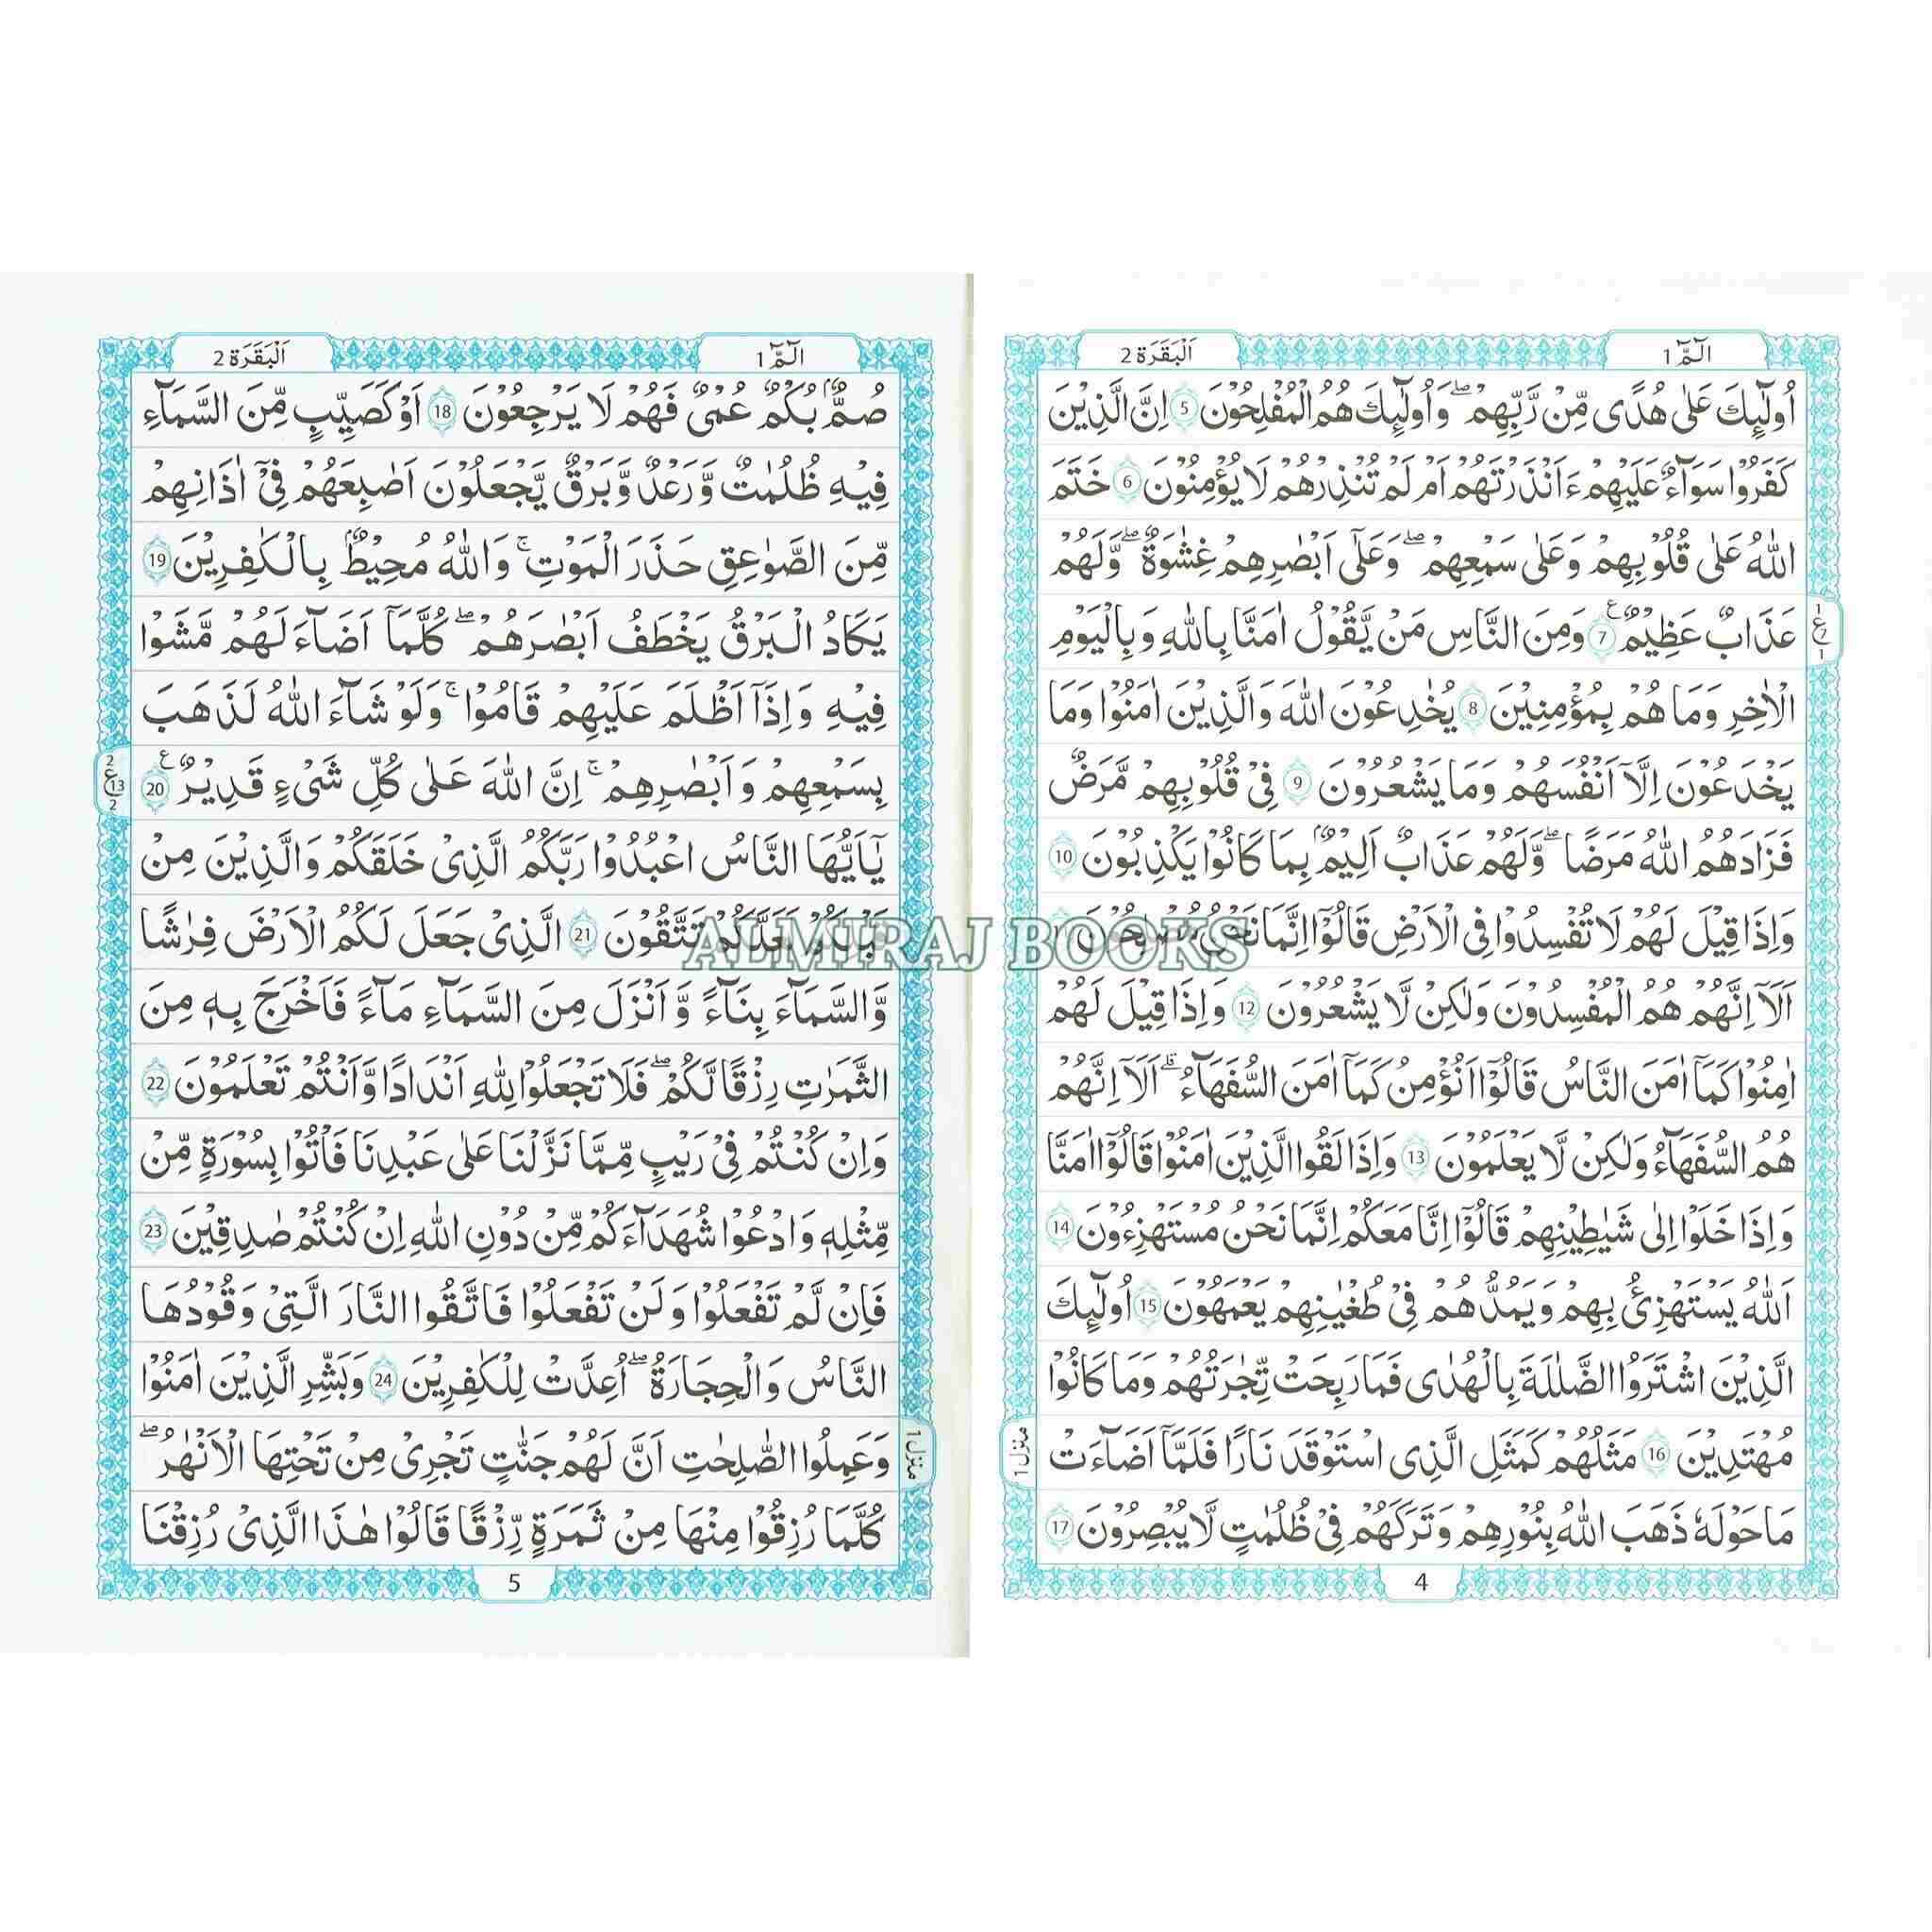 الٓمّٓ 1
اَلْبَقَرَة 2
اُولٰٓئِكَ عَلٰى هُدًى مِّنْ رَّبِّهِمْ ۖ وَاُولٰٓئِكَ هُمُ الْمُفْلِحُوْنَ 5 اِنَّ الَّذِيْنَ
كَفَرُوْا سَوَآءٌ عَلَيْهِمْ ءَاَنْذَرْتَهُمْ اَمْ لَمْ تُنْذِرْهُمْ لَا يُؤْمِنُوْنَ 6 خَتَمَ
اللّٰهُ عَلٰى قُلُوْبِهِمْ وَعَلٰى سَمْعِهِمْ ۖ وَعَلٰٓى اَبْصٰرِهِمْ غِشٰوَةٌ ۖ وَّلَهُمْ
عَذَابٌ عَظِيْمٌ 7 ع وَمِنَ النَّاسِ مَنْ يَّقُوْلُ اٰمَنَّا بِاللّٰهِ وَبِالْيَوْمِ
1 ع 7 1
الْاٰخِرِ وَمَا هُمْ بِمُؤْمِنِيْنَ 8 يُخٰدِعُوْنَ اللّٰهَ وَالَّذِيْنَ اٰمَنُوْا وَمَا
يَخْدَعُوْنَ اِلَّآ اَنْفُسَهُمْ وَمَا يَشْعُرُوْنَ 9 فِيْ قُلُوْبِهِمْ مَّرَضٌ
فَزَادَهُمُ اللّٰهُ مَرَضًا ۖ وَّلَهُمْ عَذَابٌ اَلِيْمٌۢ بِمَا كَانُوْا يَكْذِبُوْنَ 10
وَاِذَا قِيْلَ لَهُمْ لَا تُفْسِدُوْا فِى الْاَرْضِ قَالُوْٓا اِنَّمَا نَحْنُ
اَلَآ اِنَّهُمْ هُمُ الْمُفْسِدُوْنَ وَلٰكِنْ لَّا يَشْعُرُوْنَ 12 وَاِذَا قِيْلَ لَهُمْ
اٰمِنُوْا كَمَآ اٰمَنَ النَّاسُ قَالُوْٓا اَنُؤْمِنُ كَمَآ اٰمَنَ السُّفَهَآءُ ۗ اَلَآ اِنَّهُمْ
هُمُ السُّفَهَآءُ وَلٰكِنْ لَّا يَعْلَمُوْنَ 13 وَاِذَا لَقُوا الَّذِيْنَ اٰمَنُوْا قَالُوْٓا اٰمَنَّا
وَاِذَا خَلَوْا اِلٰى شَيٰطِيْنِهِمْ قَالُوْٓا اِنَّا مَعَكُمْ اِنَّمَا نَحْنُ مُسْتَهْزِءُوْنَ 14
اَللّٰهُ يَسْتَهْزِئُ بِهِمْ وَيَمُدُّهُمْ فِيْ طُغْيٰنِهِمْ يَعْمَهُوْنَ 15 اُولٰٓئِكَ
الَّذِيْنَ اشْتَرَوُا الضَّلٰلَةَ بِالْهُدٰى فَمَا رَبِحَتْ تِّجٰرَتُهُمْ وَمَا كَانُوْا
مُهْتَدِيْنَ 16 مَثَلُهُمْ كَمَثَلِ الَّذِى اسْتَوْقَدَ نَارًا فَلَمَّآ اَضَآءَتْ
منزل 1
مَا حَوْلَهٗ ذَهَبَ اللّٰهُ بِنُوْرِهِمْ وَتَرَكَهُمْ فِيْ ظُلُمٰتٍ لَّا يُبْصِرُوْنَ 17
4
الٓمّٓ 1
اَلْبَقَرَة 2
صُمٌّۢ بُكْمٌ عُمْىٌ فَهُمْ لَا يَرْجِعُوْنَ 18 اَوْ كَصَيِّبٍ مِّنَ السَّمَآءِ
فِيْهِ ظُلُمٰتٌ وَّرَعْدٌ وَّبَرْقٌ يَّجْعَلُوْنَ اَصٰبِعَهُمْ فِيْٓ اٰذَانِهِمْ
مِّنَ الصَّوٰعِقِ حَذَرَ الْمَوْتِ ۚ وَاللّٰهُ مُحِيْطٌۢ بِالْكٰفِرِيْنَ 19
يَكَادُ الْبَرْقُ يَخْطَفُ اَبْصٰرَهُمْ ۖ كُلَّمَآ اَضَآءَ لَهُمْ مَّشَوْا
فِيْهِ وَاِذَآ اَظْلَمَ عَلَيْهِمْ قَامُوْا ۚ وَلَوْ شَآءَ اللّٰهُ لَذَهَبَ
بِسَمْعِهِمْ وَاَبْصٰرِهِمْ ۚ اِنَّ اللّٰهَ عَلٰى كُلِّ شَىْءٍ قَدِيْرٌ ع 20
2 ع 13 2
يٰٓاَيُّهَا النَّاسُ اعْبُدُوْا رَبَّكُمُ الَّذِيْ خَلَقَكُمْ وَالَّذِيْنَ مِنْ
قَبْلِكُمْ لَعَلَّكُمْ تَتَّقُوْنَ 21 الَّذِيْ جَعَلَ لَكُمُ الْاَرْضَ فِرٰشًا
وَّالسَّمَآءَ بِنَآءً وَّاَنْزَلَ مِنَ السَّمَآءِ مَآءً فَاَخْرَجَ بِهٖ مِنَ
الثَّمَرٰتِ رِزْقًا لَّكُمْ ۖ فَلَا تَجْعَلُوْا لِلّٰهِ اَنْدَادًا وَّاَنْتُمْ تَعْلَمُوْنَ 22
وَاِنْ كُنْتُمْ فِيْ رَيْبٍ مِّمَّا نَزَّلْنَا عَلٰى عَبْدِنَا فَاْتُوْا بِسُوْرَةٍ مِّنْ
مِّثْلِهٖ وَادْعُوْا شُهَدَآءَكُمْ مِّنْ دُوْنِ اللّٰهِ اِنْ كُنْتُمْ صٰدِقِيْنَ 23
فَاِنْ لَّمْ تَفْعَلُوْا وَلَنْ تَفْعَلُوْا فَاتَّقُوا النَّارَ الَّتِيْ وَقُوْدُهَا
النَّاسُ وَالْحِجَارَةُ ۖ اُعِدَّتْ لِلْكٰفِرِيْنَ 24 وَبَشِّرِ الَّذِيْنَ اٰمَنُوْا
وَعَمِلُوا الصّٰلِحٰتِ اَنَّ لَهُمْ جَنّٰتٍ تَجْرِيْ مِنْ تَحْتِهَا الْاَنْهٰرُ ۖ
منزل 1
كُلَّمَا رُزِقُوْا مِنْهَا مِنْ ثَمَرَةٍ رِّزْقًا قَالُوْا هٰذَا الَّذِيْ رُزِقْنَا
5
ALMIRAJ BOOKS